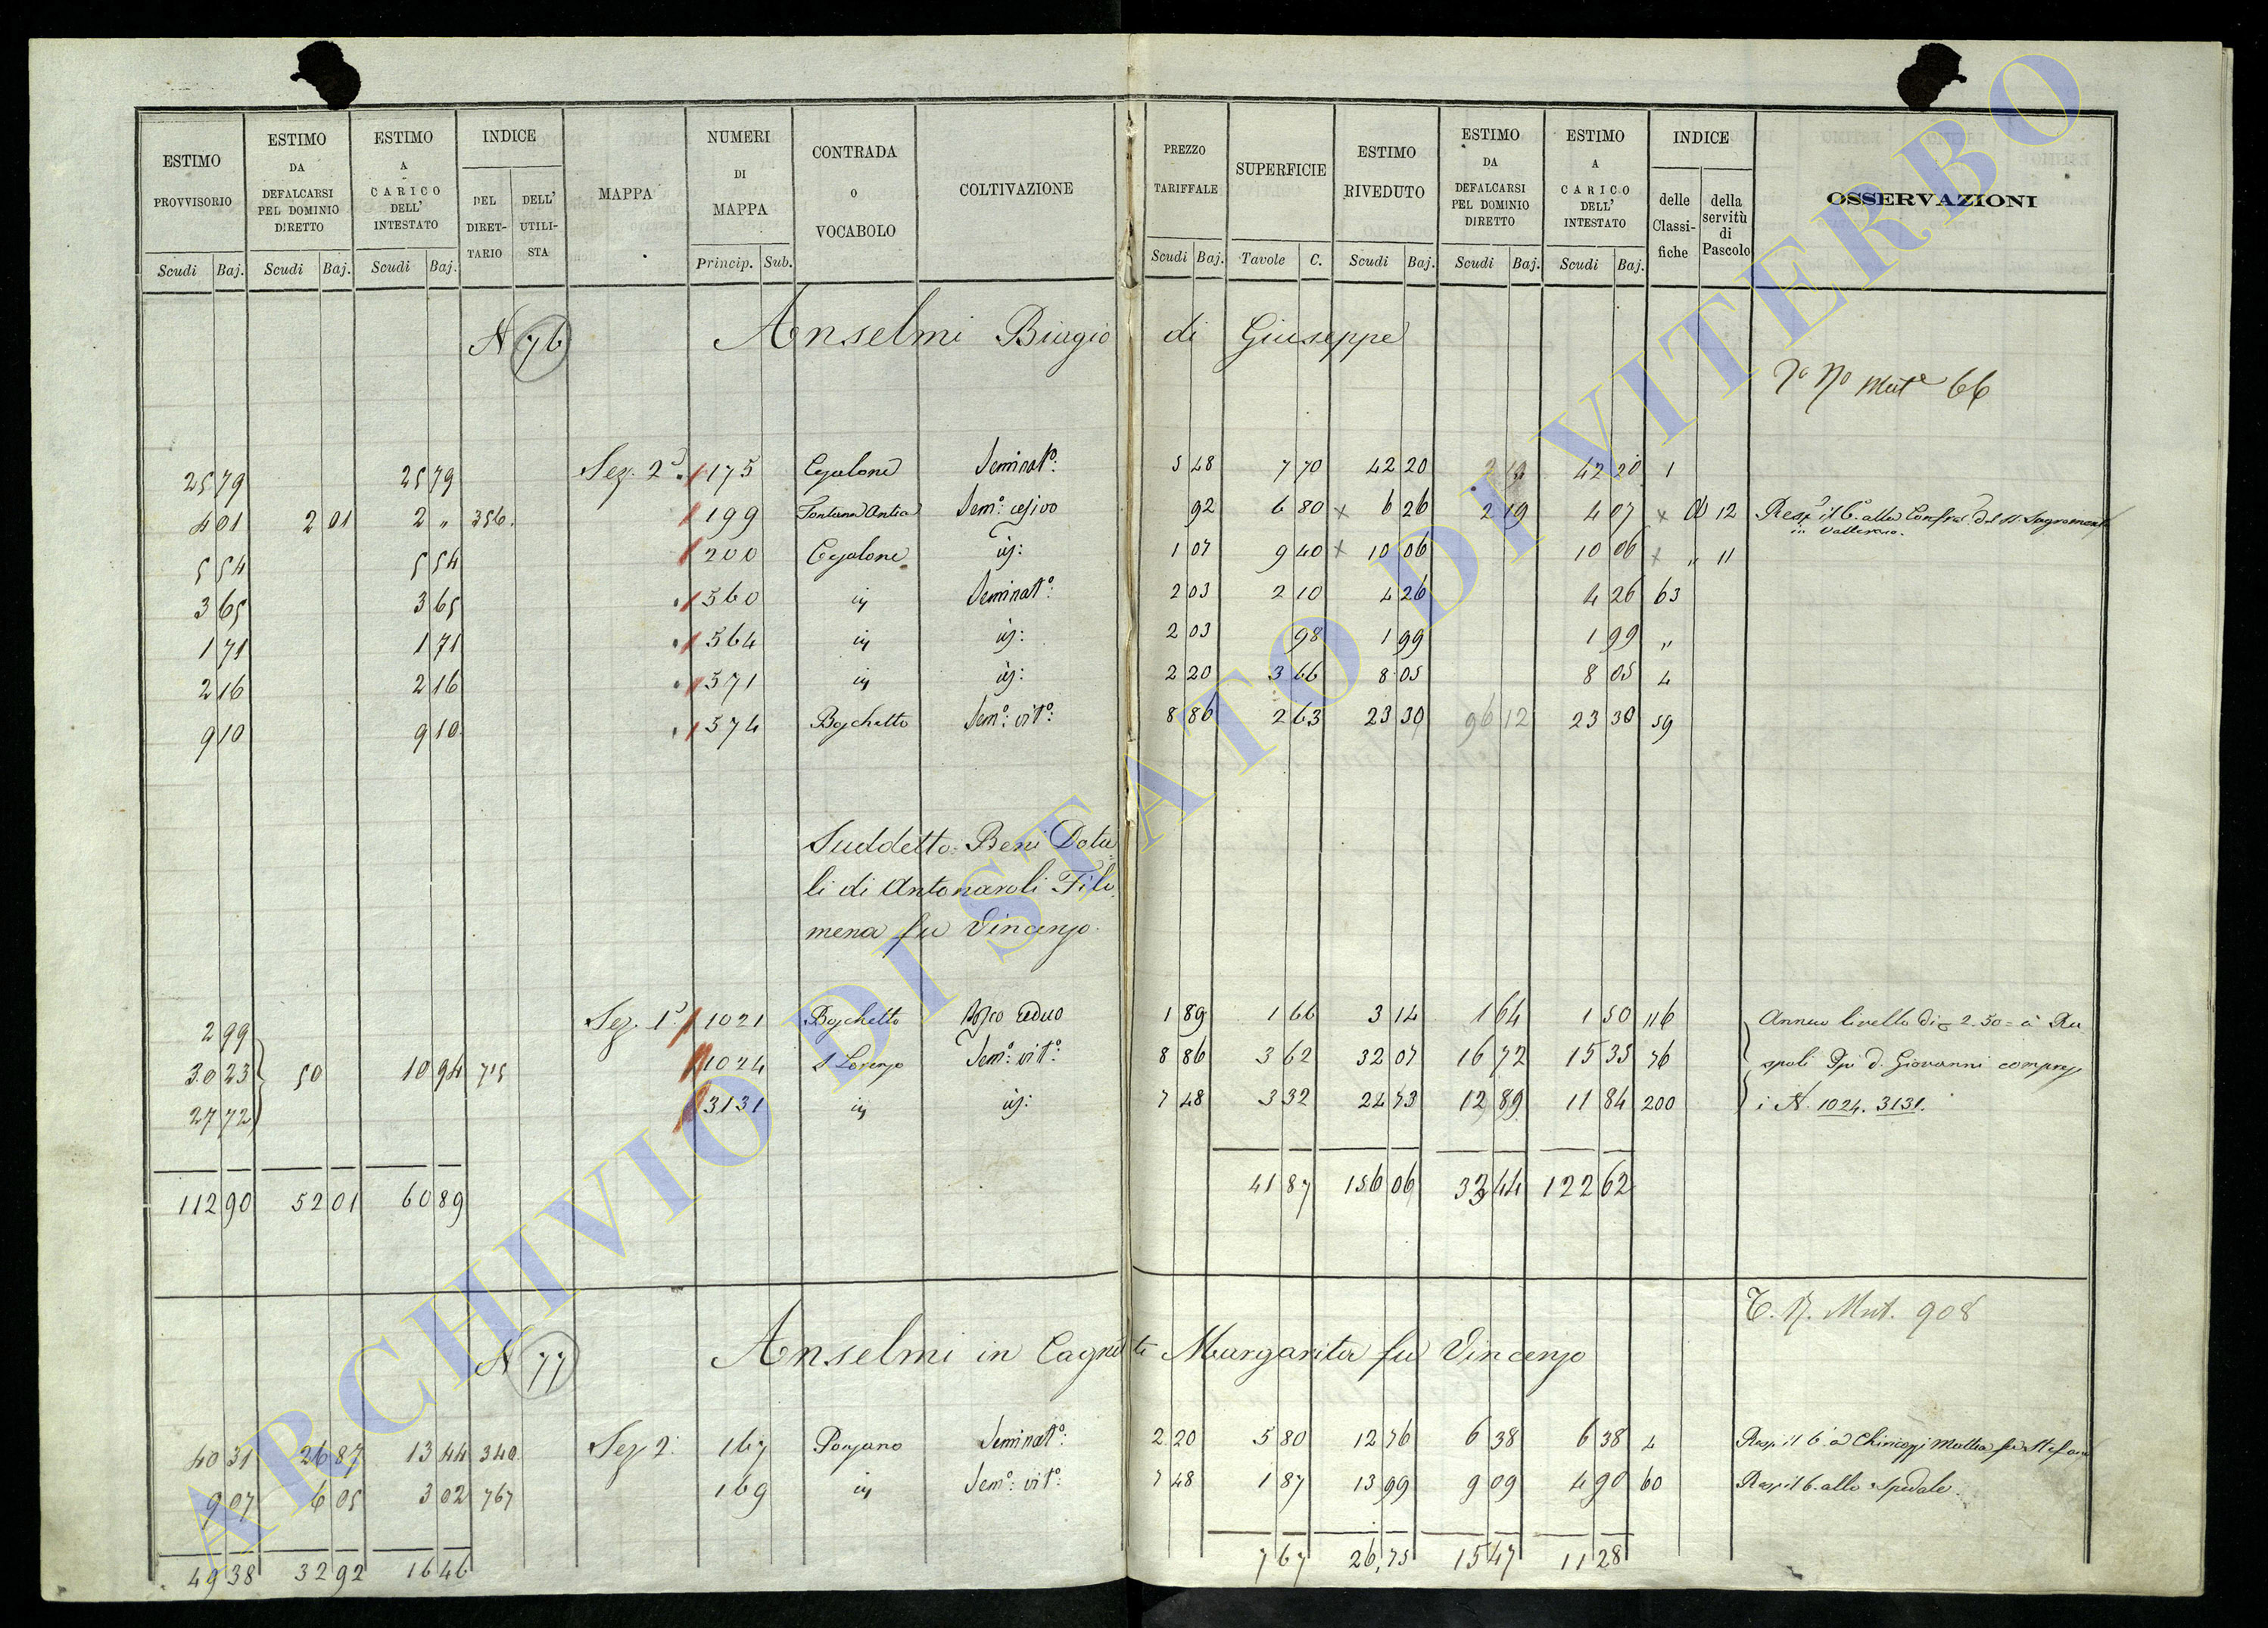 ESTIMO PROVVISORIO Scudi Baj.
ESTIMO DA DEFALCARSI PEL DOMINIO DIRETTO Scudi Baj.
ESTIMO A CARICO DELL' INTESTATO Scudi Baj.
INDICE DEL DIRETTARIO DELL' UTILISTA
MAPPA
NUMERI DI MAPPA Princip. Sub.
CONTRADA O VOCABOLO
COLTIVAZIONE
PREZZO TARIFFALE Scudi Baj.
SUPERFICIE Tavole C.
ESTIMO RIVEDUTO Scudi Baj.
ESTIMO DA DEFALCARSI PEL DOMINIO DIRETTO Scudi Baj.
ESTIMO A CARICO DELL' INTESTATO Scudi Baj.
INDICE delle Classifiche della servitù di Pascolo
OSSERVAZIONI
N 76 Anselmi Biagio di Giuseppe
Mut.e 66
25 79 25 79 Sez. 2ª 175 Seminat.o: 5 48 7 70 42 20 2 19 42 20 1
4 01 2 01 2 " 356. 199 Fontana Antica Sem.o: cesivo 92 6 80 x 6 26 2 19 4 07 x 12 Resp. il 6.o alla Confra. del SS. Sagramento
in Vallerano.
5 54 5 54 200 id: 1 07 9 40 x 10 06 10 06 x " 11
3 65 3 65 560 id Seminat.o: 2 03 2 10 4 26 4 26 63
1 71 1 71 564 id id: 2 03 98 1 99 1 99 "
2 16 2 16 571 id id: 2 20 3 66 8 05 8 05 4
9 10 9 10 574 Boschetto Sem.o: vit.o: 8 86 2 63 23 30 96 12 23 30 59
Suddetto= Beni Dota
li di Antonaroli Filo
mena fu Vincenzo.
2 99 Sez. 1ª 1021 Boschetto Bosco Ceduo 1 89 1 66 3 14 1 64 1 50 116 Annuo livello di 2.50= a Ru
30 23 50 10 94 715 1024 S Lorenzo Sem.o: vit.o: 8 86 3 62 32 07 16 72 15 35 76 spoli Ppi d. Giovanni compresi
27 72 3131 id id: 7 48 3 32 24 73 12 89 11 84 200 i N. 1024. 3131.
112 90 52 01 60 89 41 87 156 06 33 44 122 62
T. N. Mut. 908
N 77 Anselmi in Cagneti Margarita fu Vincenzo
40 31 26 87 13 44 340 Sez 2ª 167 Ponzano Seminat.o: 2 20 5 80 12 76 6 38 6 38 4 Resp il 6. a Chiricozzi Mattia fu Stefano
9 07 6 05 3 02 767 169 id Sem.o: vit.o: 7 48 1 87 13 99 9 09 4 90 60 Resp il 6. allo Spedale.
49 38 32 92 16 46 7 67 26,75 15 47 11 28
ARCHIVIO DI STATO DI VITERBO